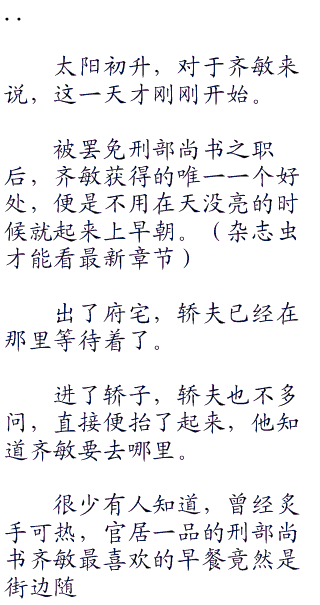 ..
太阳初升，对于齐敏来
说，这一天才刚刚开始。
被罢免刑部尚书之职
后，齐敏获得的唯一一个好
处，便是不用在天没亮的时
候就起来上早朝。（杂志虫
才能看最新章节）
出了府宅，轿夫已经在
那里等待着了。
进了轿子，轿夫也不多
问，直接便抬了起来，他知
道齐敏要去哪里。
很少有人知道，曾经炙
手可热，官居一品的刑部尚
书齐敏最喜欢的早餐竟然是
街边随